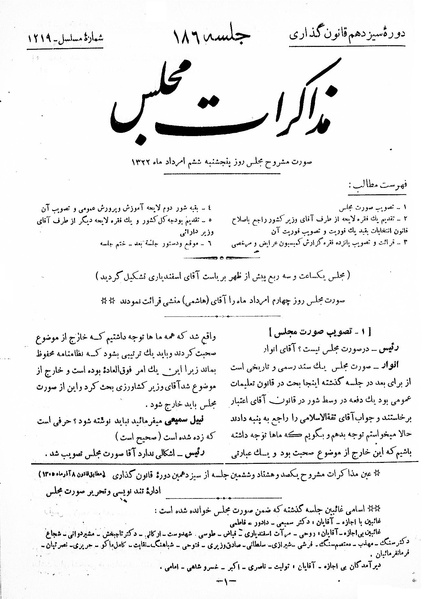 دورهٔ سیزدهم قانون گذاری
جلسه ۱۸۶
شمارهٔ مسلسل - ۱۲۱۹
مذاکرات مجلس
صورت مشروح مجلس روز پنجشنبه ششم امرداد ماه ۱۳۲۲
فهرست مطالب:
۱ - تصویب صورت مجلس
۲ - تقدیم یك فقره لایحه از طرف آقای وزیر کشور راجع باصلاح
قانون انتخابات بقید یك فوریت و تصویب فوریت آن
۳ - قرائت و تصویب پانزده فقره گزارش کمیسیون عرایض و مرخصی
۴ - بقیه شور دوم لایحه آموزش وپرورش عمومی و تصویب آن
۵ - تقدیم بودجه کل کشور و یك فقره لایحه دیگر از طرف آقای
وزیر دارائی
۶ - موقع ودستور جلسه بعد - ختم جلسه
(مجلس یکساعت و سه ربع پیش از ظهر بریاست آقای اسفندیاری تشکیل گردید)
صورت مجلس روز چهارم امرداد ماه را آقای (هاشمی) منشی قرائت نمودند **
[ ۱ - تصویب صورت مجلس ]
رئیس - درصورت مجلس نیست؟ آقای انوار
انوار - صورت مجلس یك سند رسمی و تاریخی است
از برای بعد در جلسه گذشته اینجا بحث در قانون تعلیمات
عمومی بود یك دفعه در وسط شور در قانون آقای اعتبار
برخاستند و جواب آقای ثقةالاسلامی را راجع به پنبه دادند
حالا میخواستم توجه بدهم و بگویم که ماها توجه داشته
باشیم که این خارج از موضوع صحبت بود و یك عبارتی
واقع شد که همه ما ها توجه داشتیم که خارج از موضوع
صحبت کردند وباید یك ترتیبی بشود که نظامنامه محفوظ
بماند زیرا این یك امر فوق العادهٔ بوده است و خارج از
موضوع شد آقای وزیر کشاورزی بحث کرد واین از صورت
مجلس باید خارج شود .
نبیل سمیعی - میفرمائید نباید نوشته شود؟ حرفی است
که زده شده است (صحیح است)
رئیس - اشکالی ندارد آقا صورت مجلس تصویب شد .
* عین مذاکرات مشروح یکصد و هشتاد وششمین جلسه از سیزدهمین دورهٔ قانون گذاری (مطابق قانون ۸ آذر ماه ۱۳۰۵)
ادارهٔ تند نویسی و تحریر صورت مجلس
** اسامی غائبین جلسه گذشته که ضمن صورت مجلس خوانده شده است :
غائبین با اجازه - آقایان: دکتر سمیعی - دادور - فاطمی
غائبین بی اجازه - آقایان: روحی - مرآت اسفندیاری - فیاض - طوسی - شهدوست - اردکانی - دکتر تاجبخش - مشیردوانی - شجاع
دکتر سنگ - مهذب - معتصم سنگ - فرشی - شیرازی - سلطانی - صادق وزیری - فتوحی - شباهنگ - نقابت - کامل ماکو - جریری - نصرتیان -
فرمانفرمائیان
دیرآمدگان بی اجازه - آقایان: تولیت - ناصری - اکبر - خسرو شاهی - امامی :
-۱-